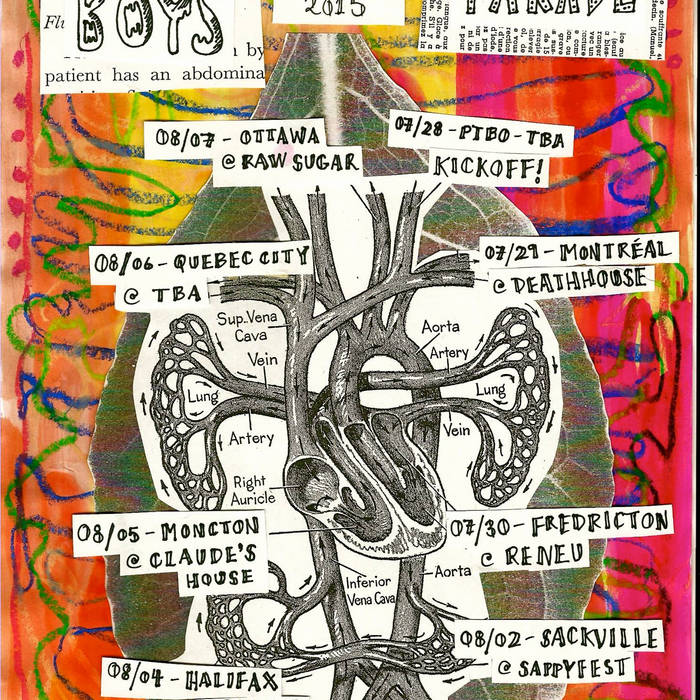 BOYS
2015
PARADE
Fl
by
patient has an abdomina
08/07 - OTTAWA
@ RAW SUGAR
07/28 - PTBO - TBA
KICKOFF!
08/06 - QUEBEC CITY
@ TBA
07/29 - MONTRÉAL
@ DEATHHOUSE
Sup. Vena
Cava
Vein
Lung
Artery
Right
Auricle
Aorta
Artery
Lung
Vein
08/05 - MONCTON
@ CLAUDE'S
HOUSE
07/30 - FREDRICTON
@ RENEU
Inferior
Vena Cava
Aorta
08/02 - SACKVILLE
@ SAPPYFEST
08/04 - HALIFAX